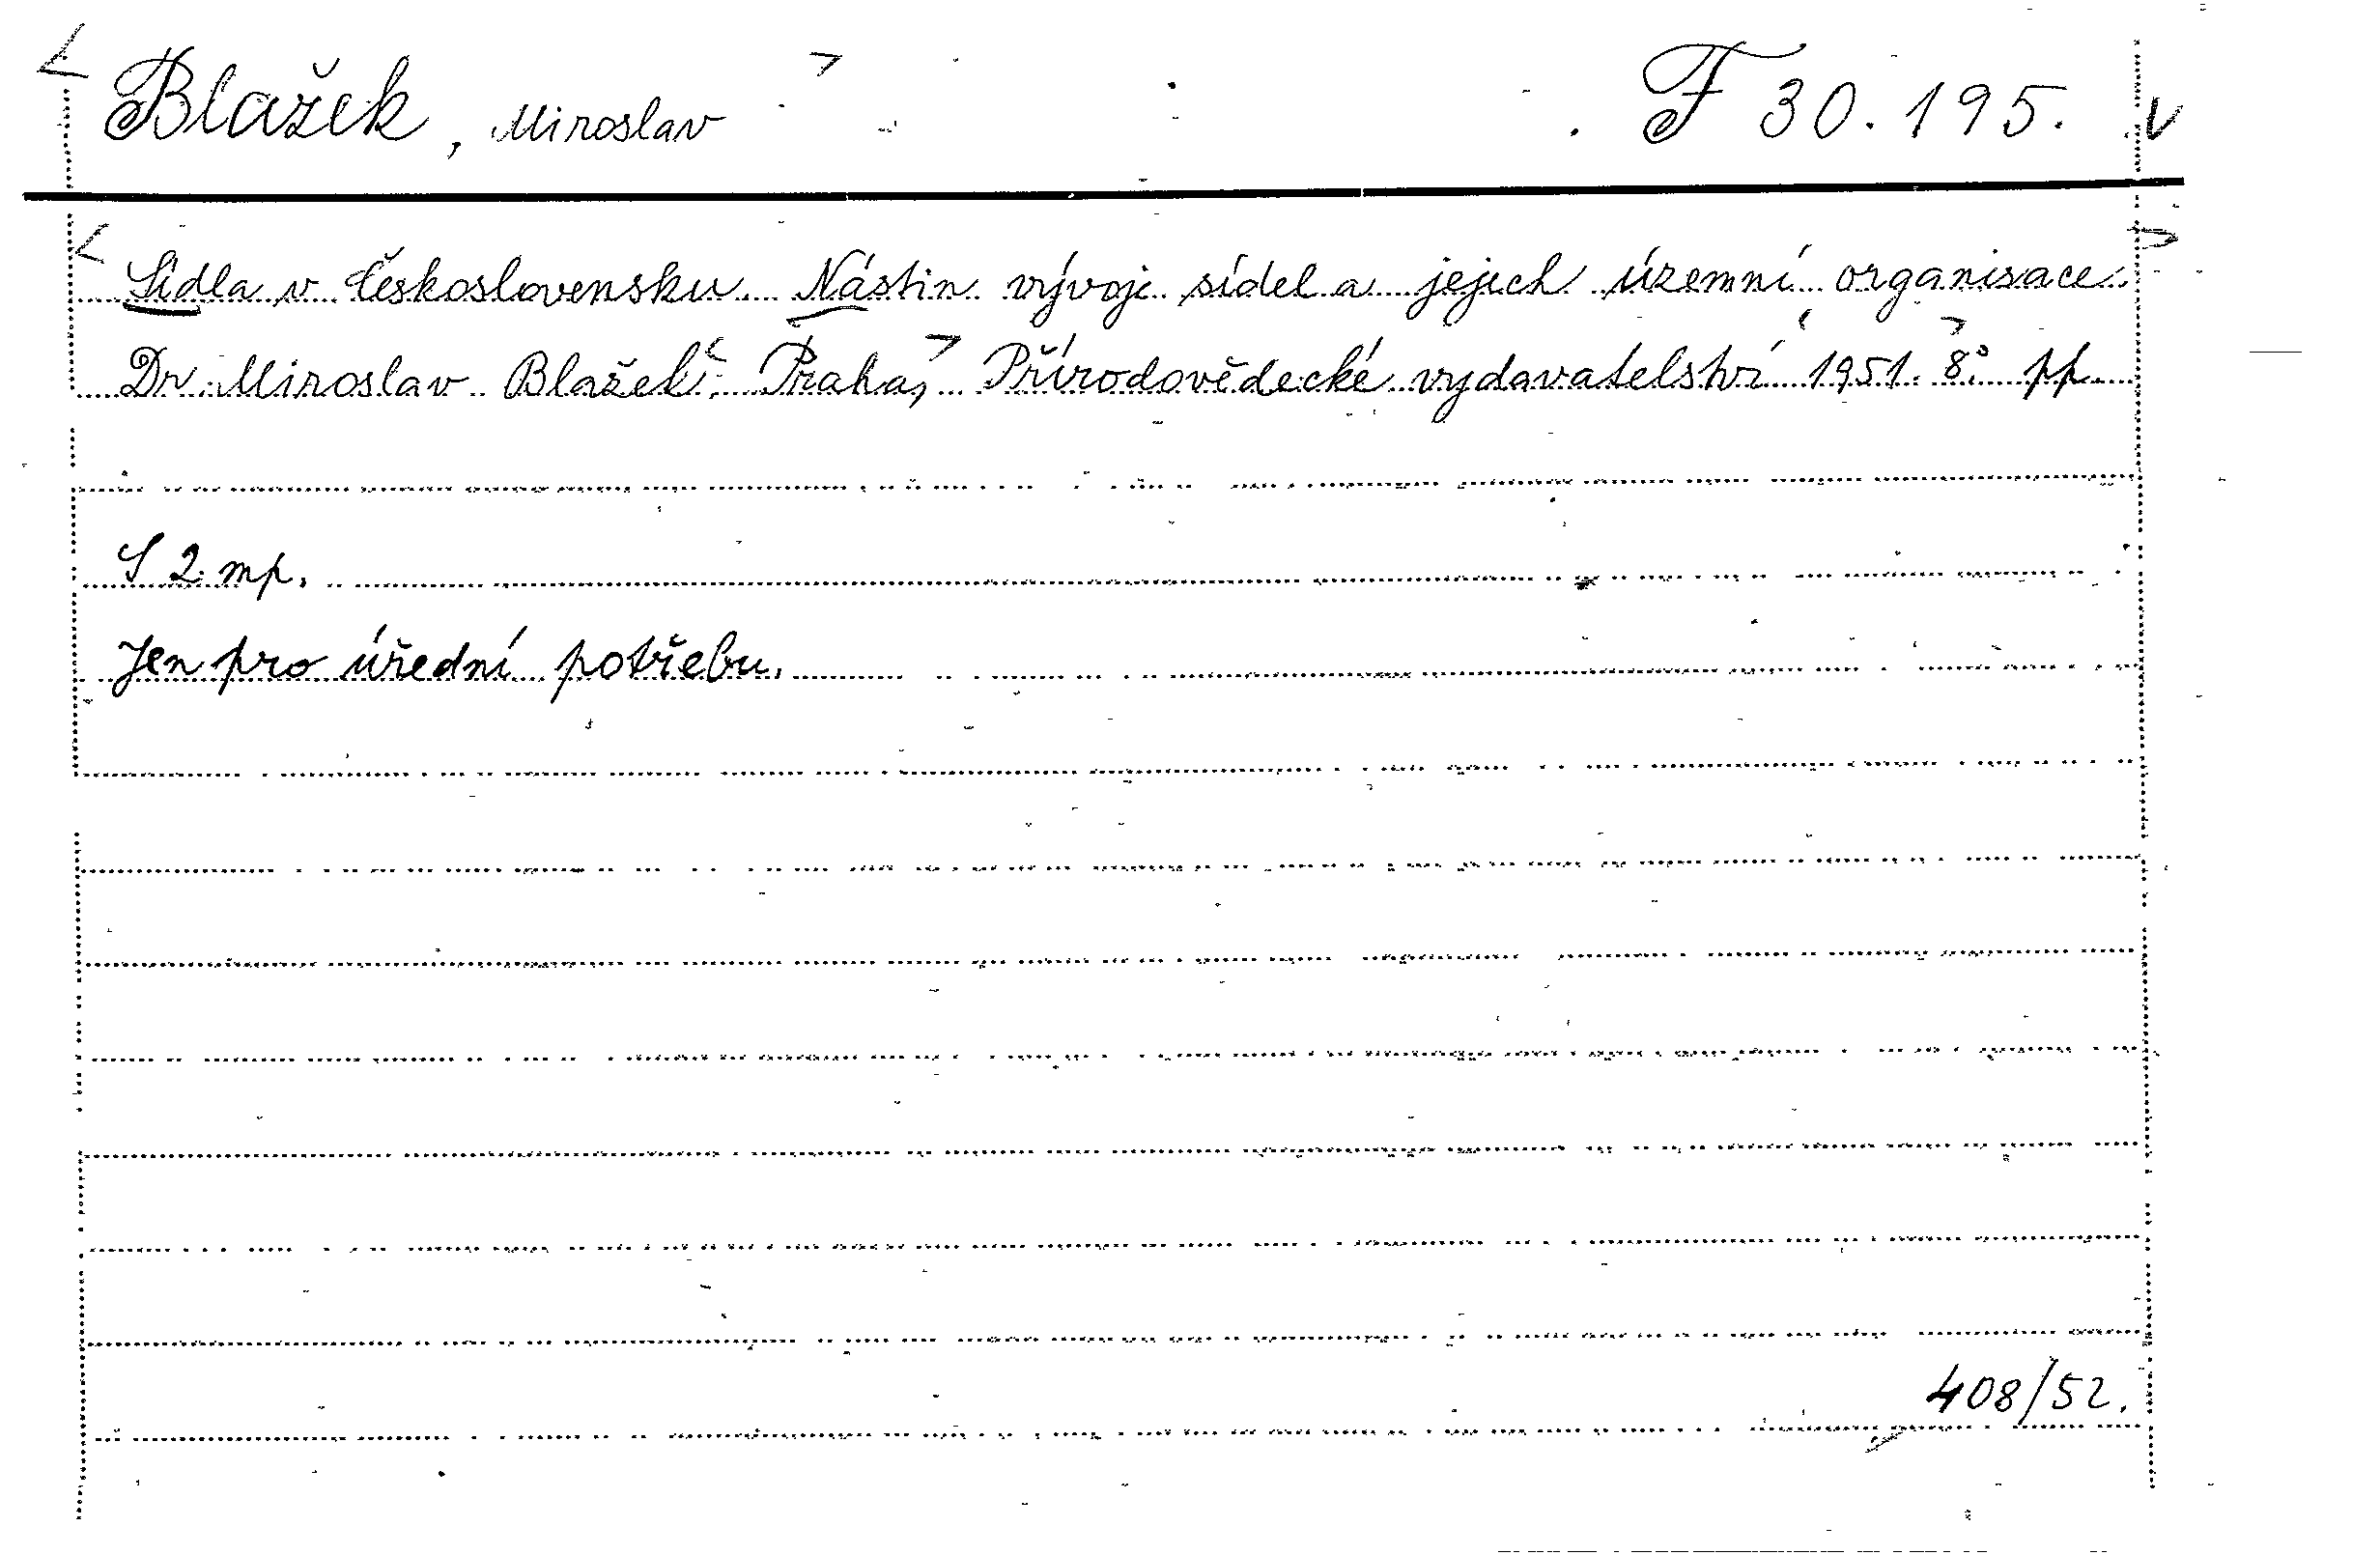 Blažek, Miroslav F 30.195. v
Sídla v Československu. Nástin vývoje sídel a jejich územní organisace.
Dr. Miroslav Blažek. Praha, Přírodovědecké vydavatelství 1951. 8°. pp.
S 2 mp.
Jen pro úřední potřebu.
408/52.